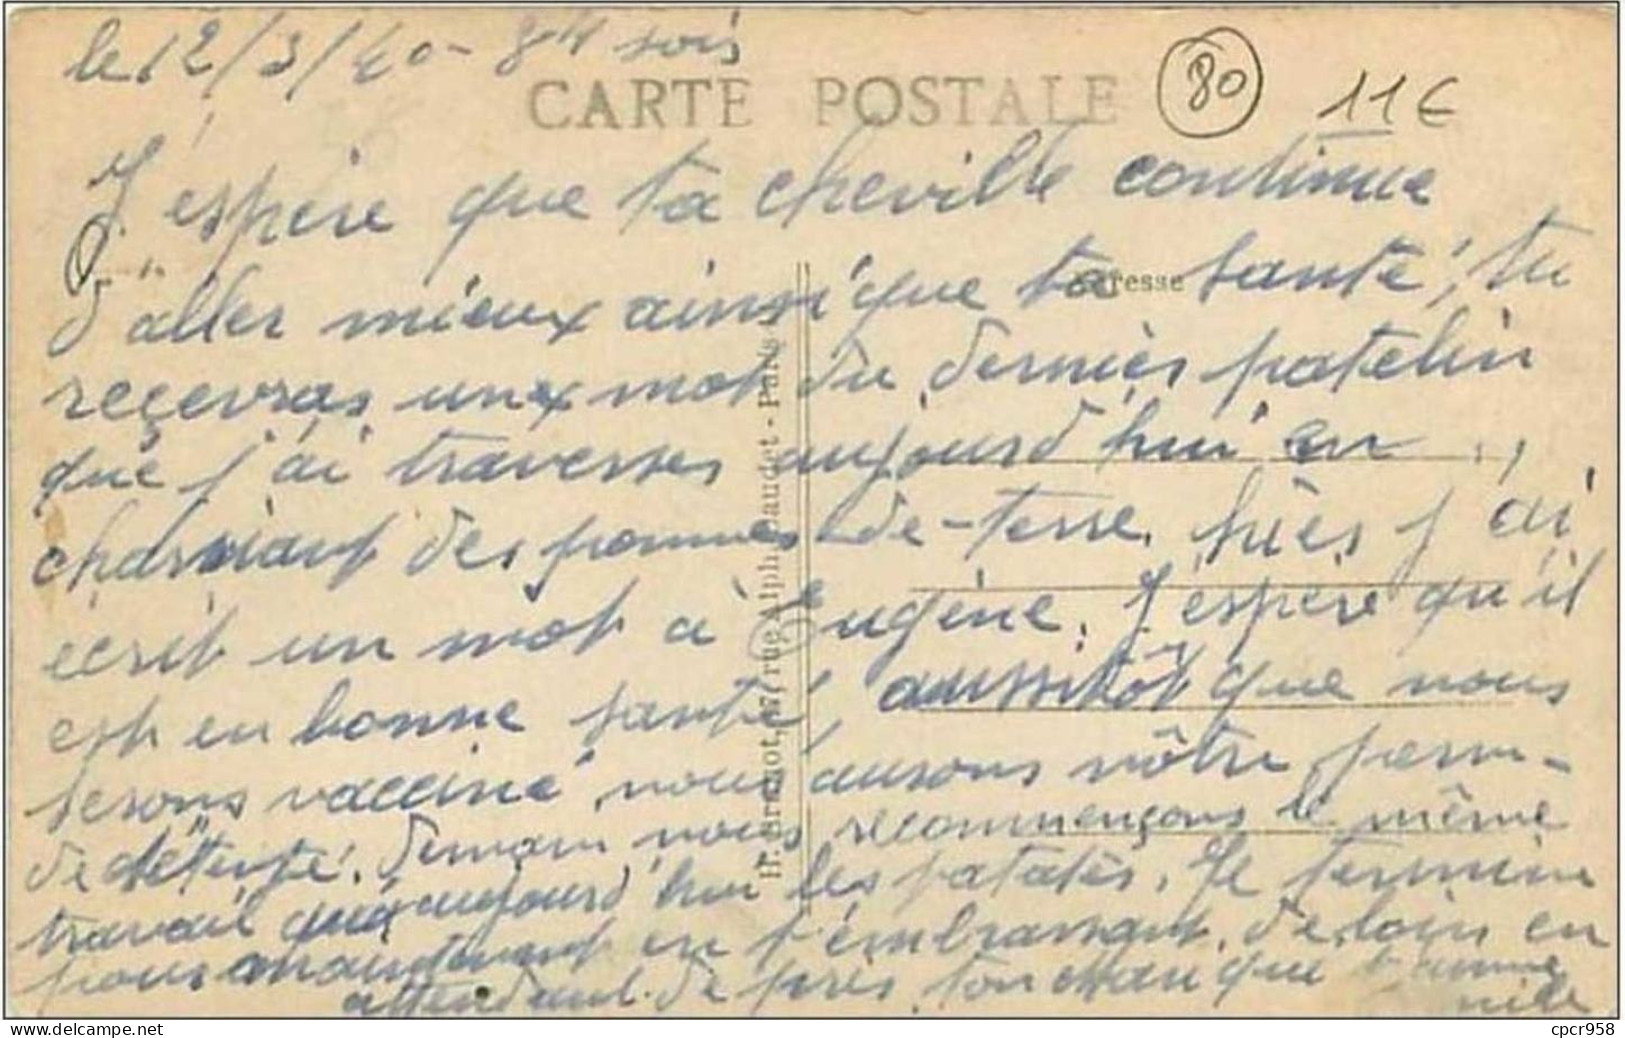 le 12/3/40 - 8h soir
CARTE POSTALE
80
11€
J'espère que ta cheville continue
Adresse
d'aller mieux ainsi que ta santé, tu
reçevras un mot du dernier patelin
que j'ai traverser aujourd'hui en
charriant des pommes de-terre. hier j'ai
écrit un mot à Eugène. J'espère qu'il
est en bonne santé, aussitôt que nous
serons vacciné, nous aurons nôtre perm-
de détente. Demain nous recommençons le même
travail qu'aujourd'hui les patates. Je termine
pour en t'embrassant. De loin en
attendant de près. ton que t'aime
H. Ermnot, 87 rue Alph. Baudet - Paris
cpcr958